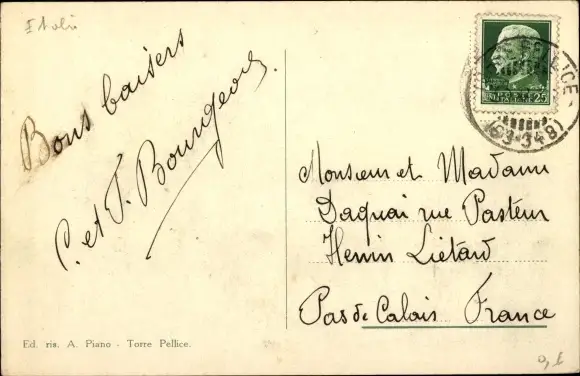 Italie
Bons baisers
C. et T. Bourgeois.
Monsieur et Madame
Daquai rue Pasteur
Henin Liétard
Pas de Calais France
Ed. ris. A. Piano - Torre Pellice.
25
(93-348)